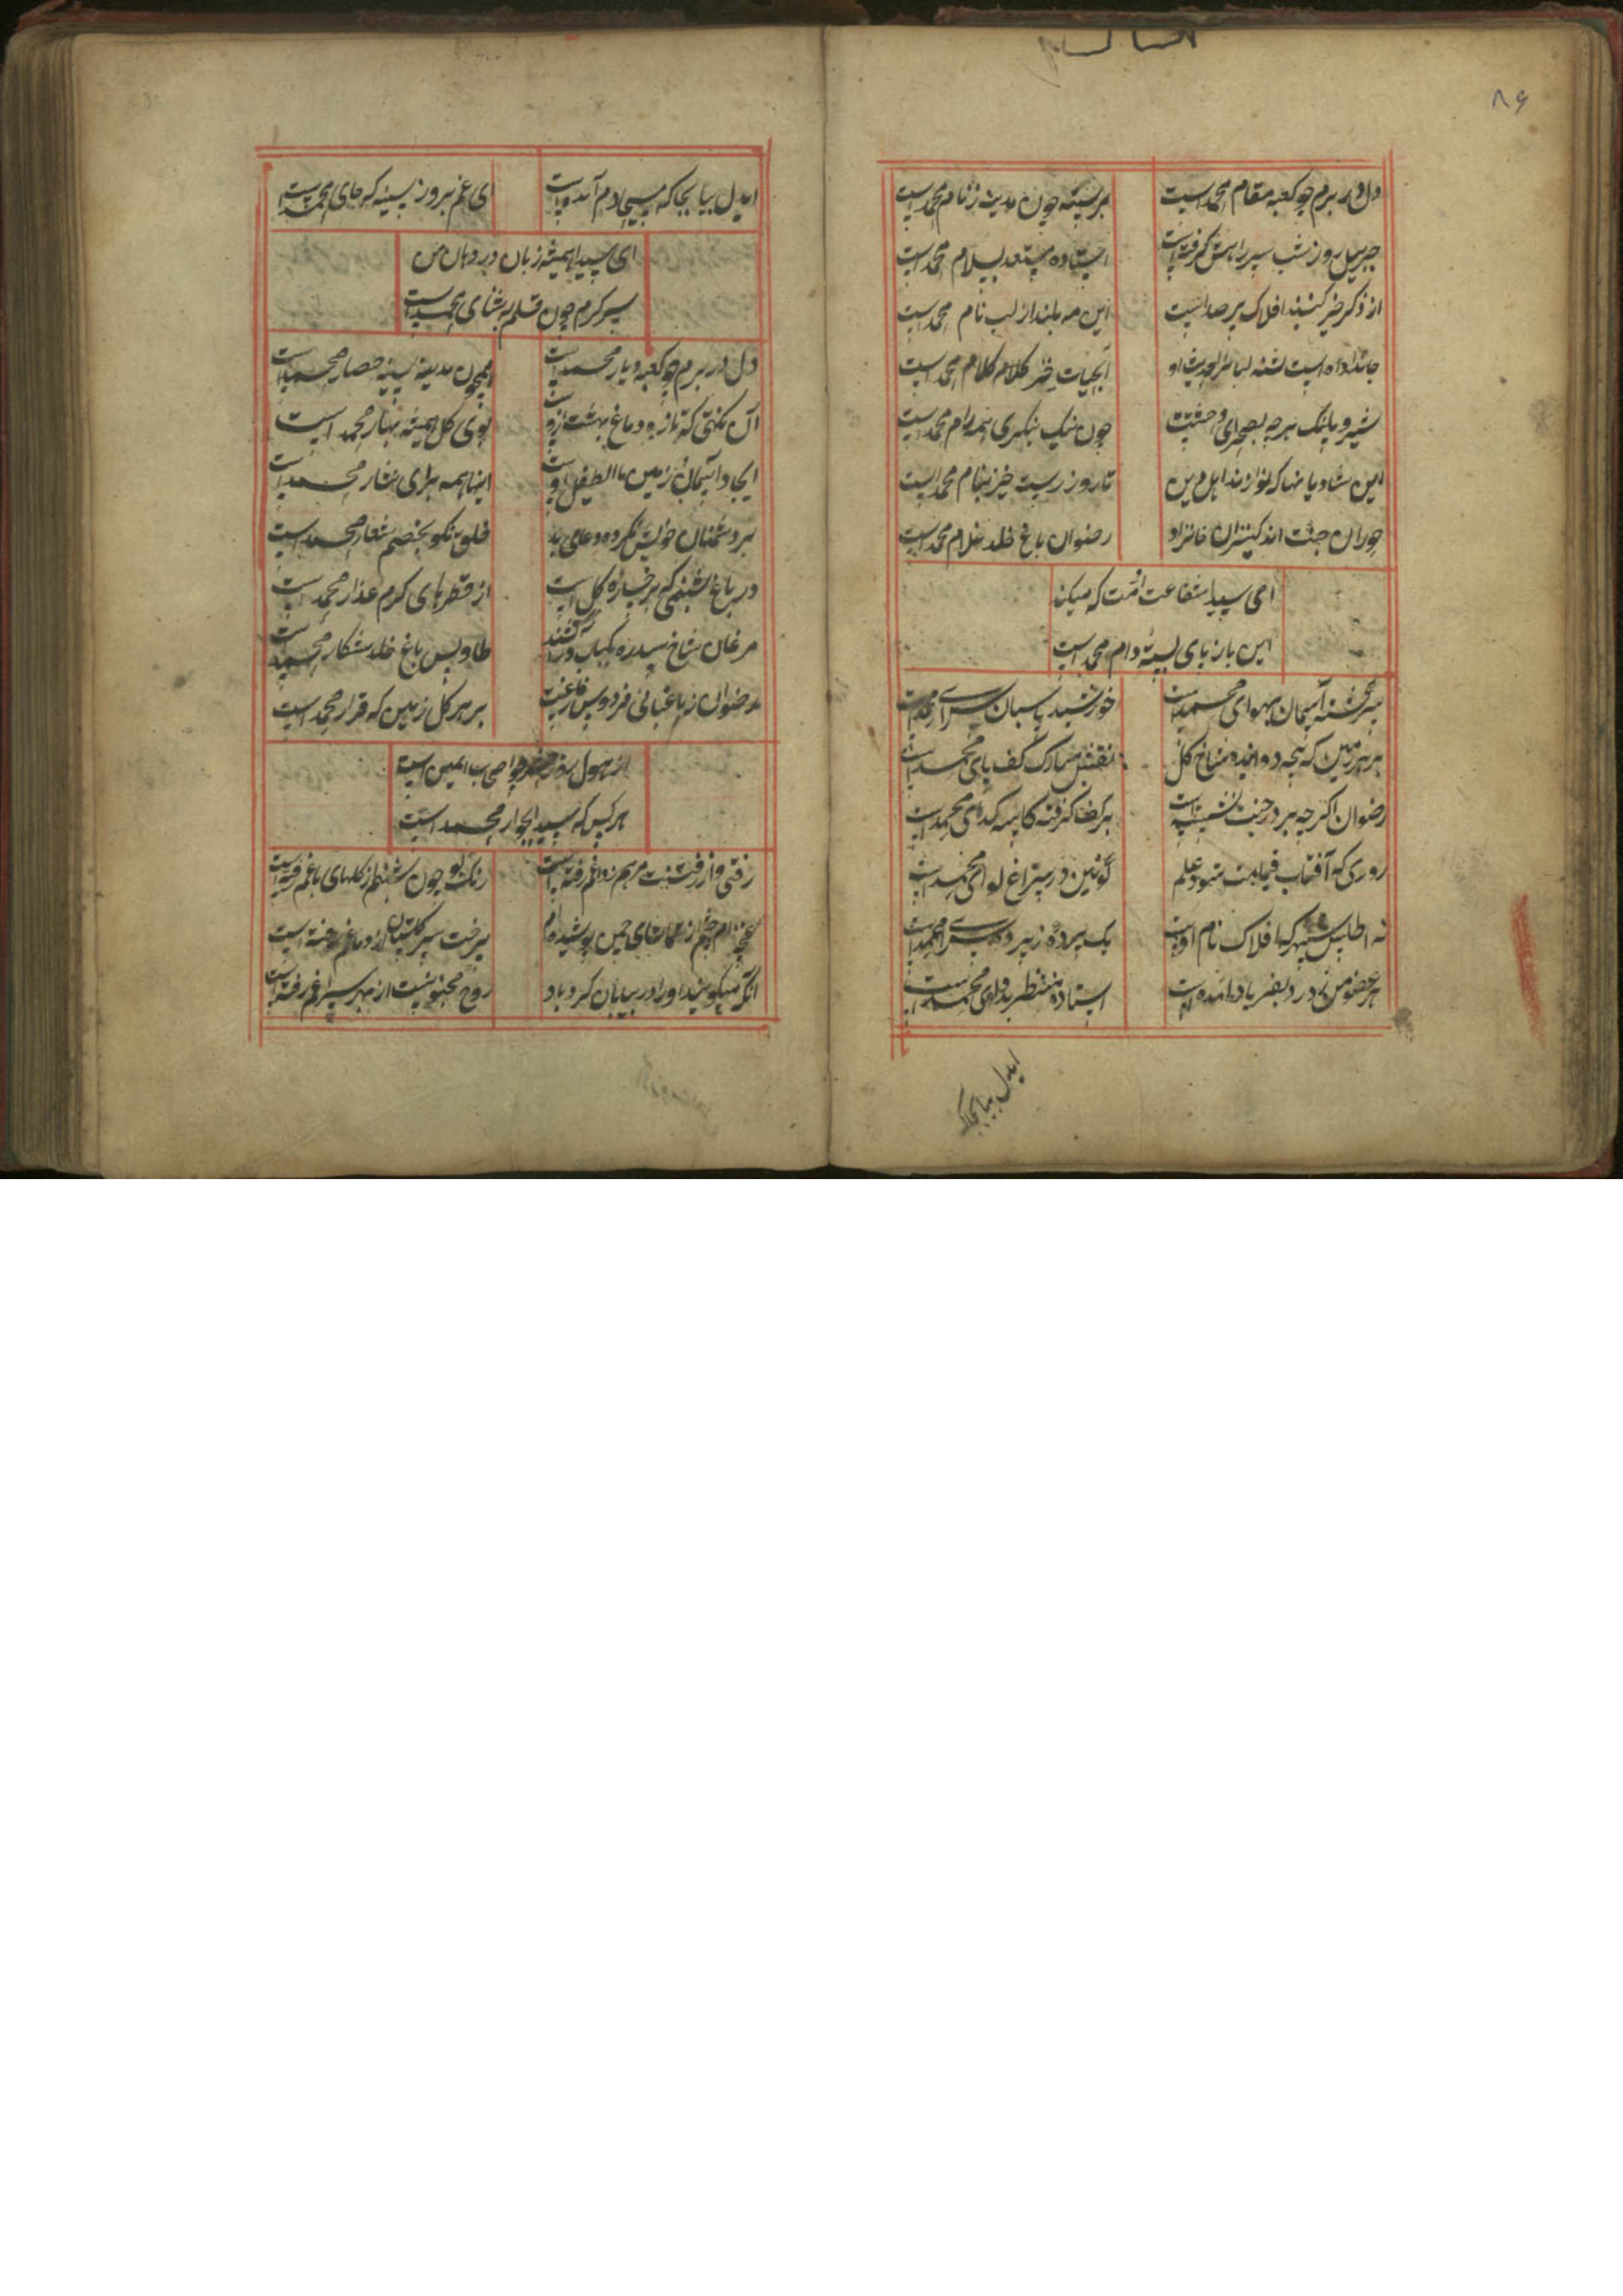 ۸۶
دل در برم چو کعبه مقام محمد است
بر سینه چون مدینه ز نام محمد است
جبریل روز شب سر راهش گرفته است
استاده مستعد سلام محمد است
از ذکر خیر گنبد افلاک پر صداست
این مه بلند از لب نام محمد است
جانداده است تشنه لبانرا حدیث او
آبحیات خضر کلام کلام محمد است
شیر و پلنگ هر چه بصحرای وحشتت
چون نیک بنگری همه رام محمد است
این شادیانها که نوازند اهل دین
تا روز رستخیز بنام محمد است
حوران جنت اند کنیزان خانزاد
رضوان باغ خلد غلام محمد است
ای سیدا شفاعت امت که میکند
این باز پای بسته دام محمد است
سرگشته آسمان بهوای محمد است
خورشید پاسبان سرای محمد است
بر هر زمین که پنجه دوانیده شاخ گل
نقش مبارک کف پای محمد است
رضوان اگر چه بر در جنت نشسته است
بر کف گرفته کاسه گدای محمد است
روزی که آفتاب قیامت شود علم
کونین در سراغ لوای محمد است
نه اطلس سپهر که افلاک نام اوست
یک پرده ز پرده سرای محمد است
هر عضو من ز درد بفریاد آمده است
استاده منتظر بدوای محمد است
ایدل بیا بجا که
ایدل بیا بجا که مسیحا دم آمد است
ای غم برو ز سینه که جای محمد است
ای سیدا همیشه زبان در دهان من
سر گرم چون قلم به ثنای محمد است
دل در برم چو کعبه دیار محمد است
همچون مدینه سینه حصار محمد است
آن نکهتی که تازه دماغ بهشت ازوست
بوی گل همیشه بهار محمد است
ایجاد آسمان زمین الطفیل اوست
اینها همه برای نثار محمد است
بر دشمنان خویش نکرده دعای بد
خلق نکو بخصم شعار محمد است
در باغ شبنمی که بر خساره گل است
از قطرهای گرم عذار محمد است
مرغان شاخ سدره
طاوس باغ خلد شکار محمد است
رضوان ز باغبانی فردوس فارغست
بر هر گل زمین که قرار محمد است
از هول روز حشر ایمن است
هر کس که سیدا بجوار محمد است
رفتی و از رفتنت مرهم ز داغم رفته است
رنگ بو چون شبنم از گلهای باغم رفته است
غنچه ام چشم از تماشای چمن پوشیده ام
سیر گلستان از دماغم رفته است
آنکه میگویند او را در بیابان گرد باد
روح مجنونیست از بهر سراغم رفته است